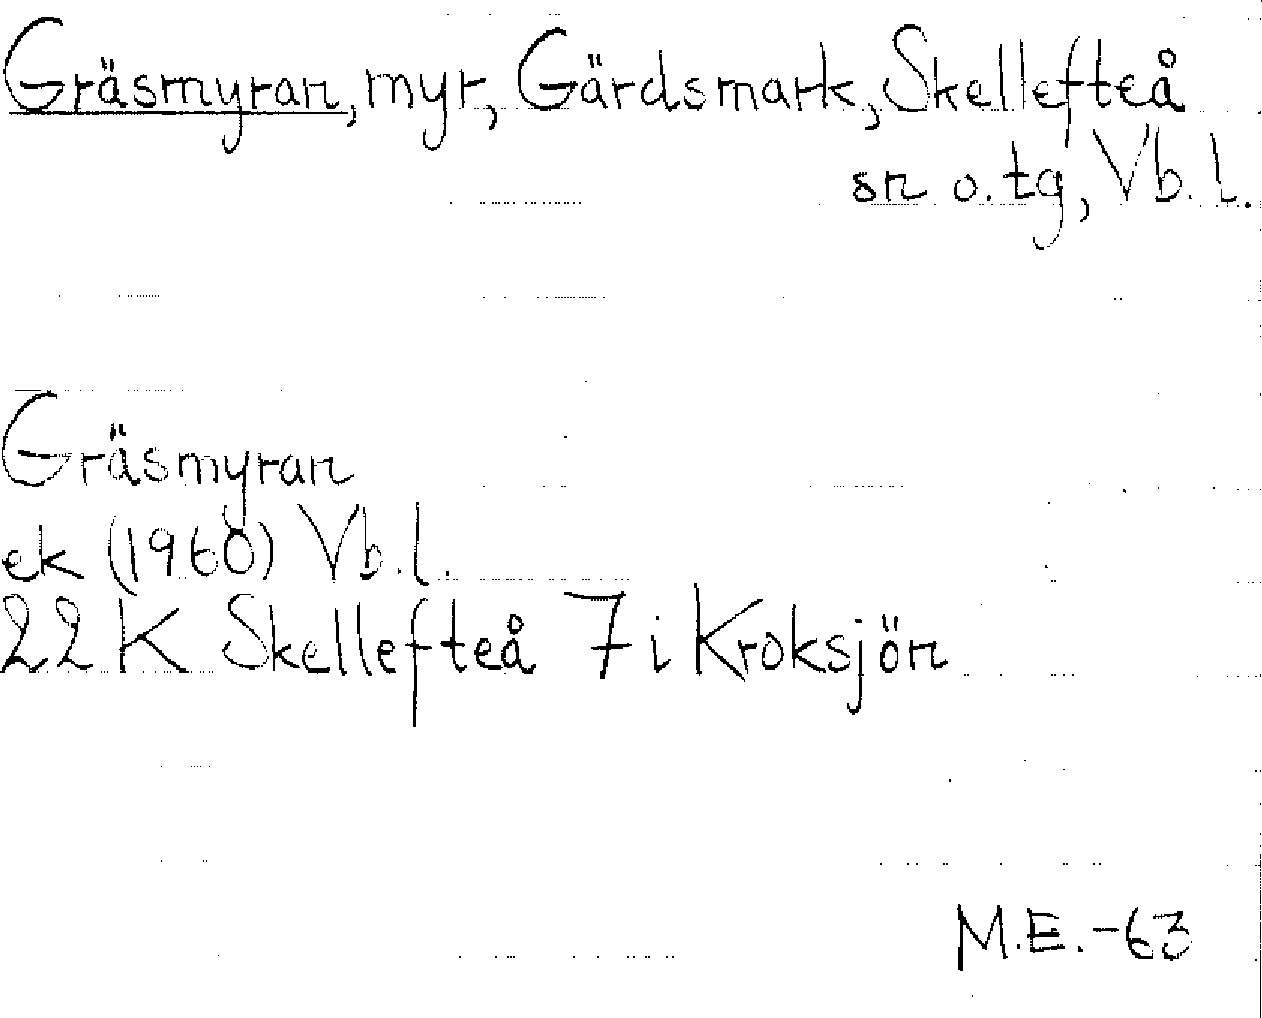 Gräsmyran, myr, Gärdsmark, Skellefteå
sn o. tg, Vb. l.
Gräsmyran
ek (1960) Vb. l.
22 K Skellefteå 7 i Kroksjön
M.E. -63